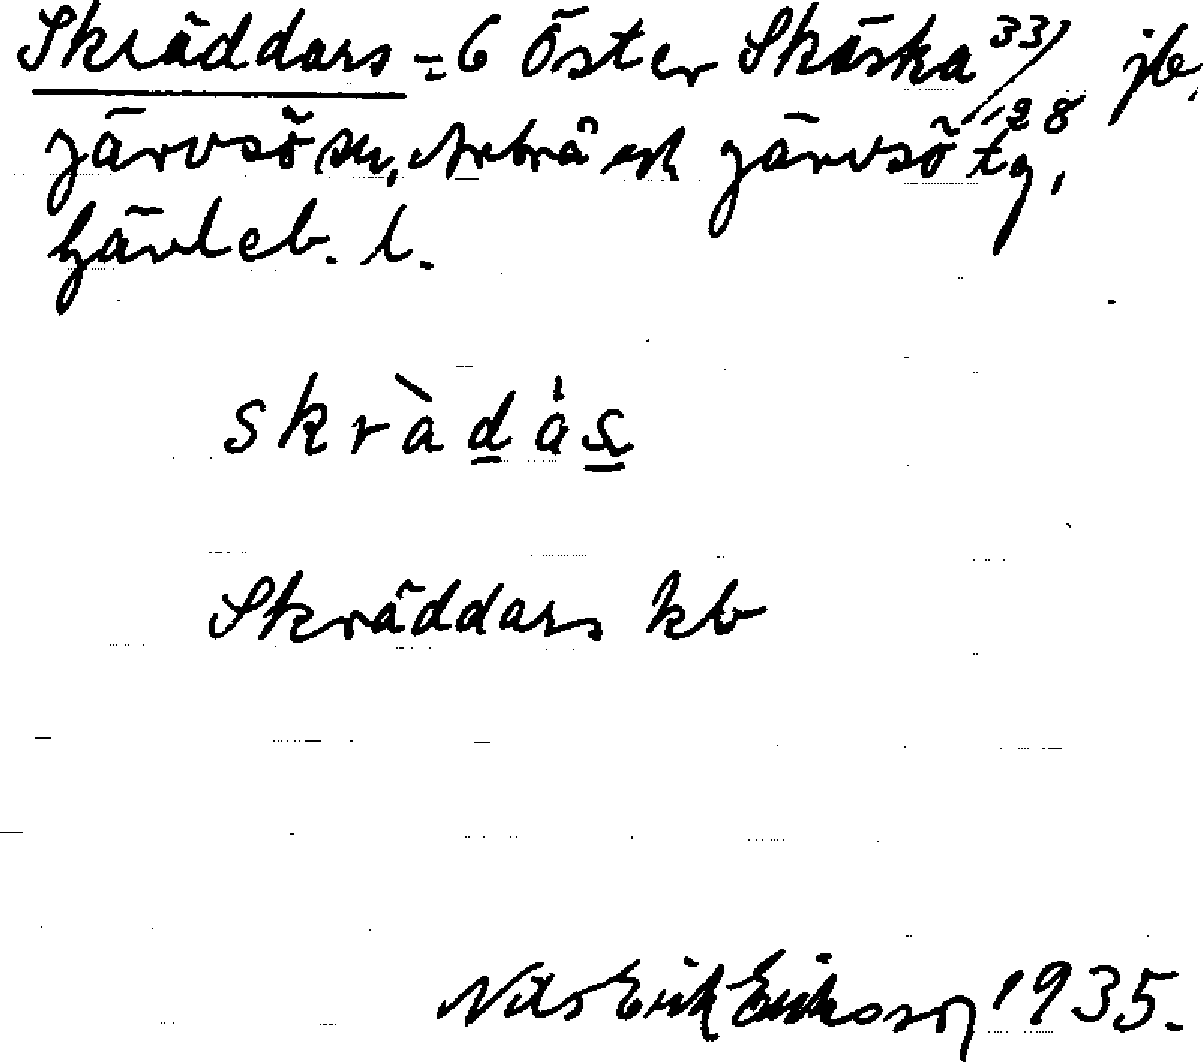 Skräddars = 6 Öster Skästra 33/128 jb,
Järvsö sn, Arbrå och Järvsö tg,
Gävleb. l.
skràdȧs
Skräddars kb
Nils Erik Eriksson 1935.